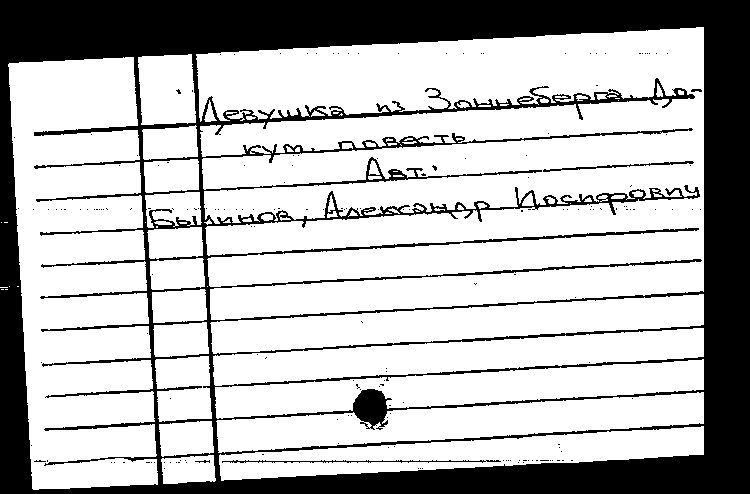 Девушка из Зоннеберга. До-
кум. повесть.
Авт.:
Былинов, Александр Иосифович